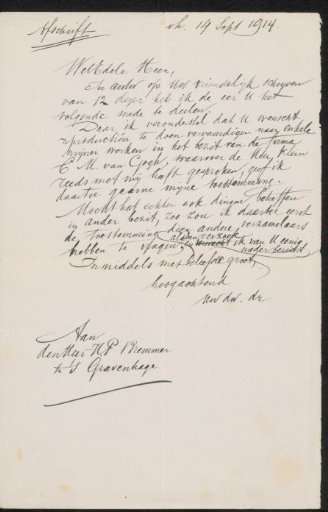 Afschrift
d. 19 Sept 1914
WelEdele Heer,
In antw op Uw vriendelijk schrijven
van 12 dezer heb ik de eer U het
volgende mede te deelen.
Daar ik veronderstel dat U wenscht
reproductiën te doen vervaardigen naar enkele
mijner werken in het bezit van de firma
C M van Gogh, waarover de Heer Klein
reeds met mij heeft gesproken, geef ik
daartoe gaarne mijne toestemming.
Mocht het echter ook dingen betreffen
in ander bezit, zoo zou ik daartoe eerst
de toestemming dier andere verzamelaars
hebben te vragen, alsdan verzoek ik van U eenig
nader bericht.
Inmiddels met beleefde groet,
hoogachtend
Uw dw. dr
Aan
den Heer H P Bremmer
te 's Gravenhage